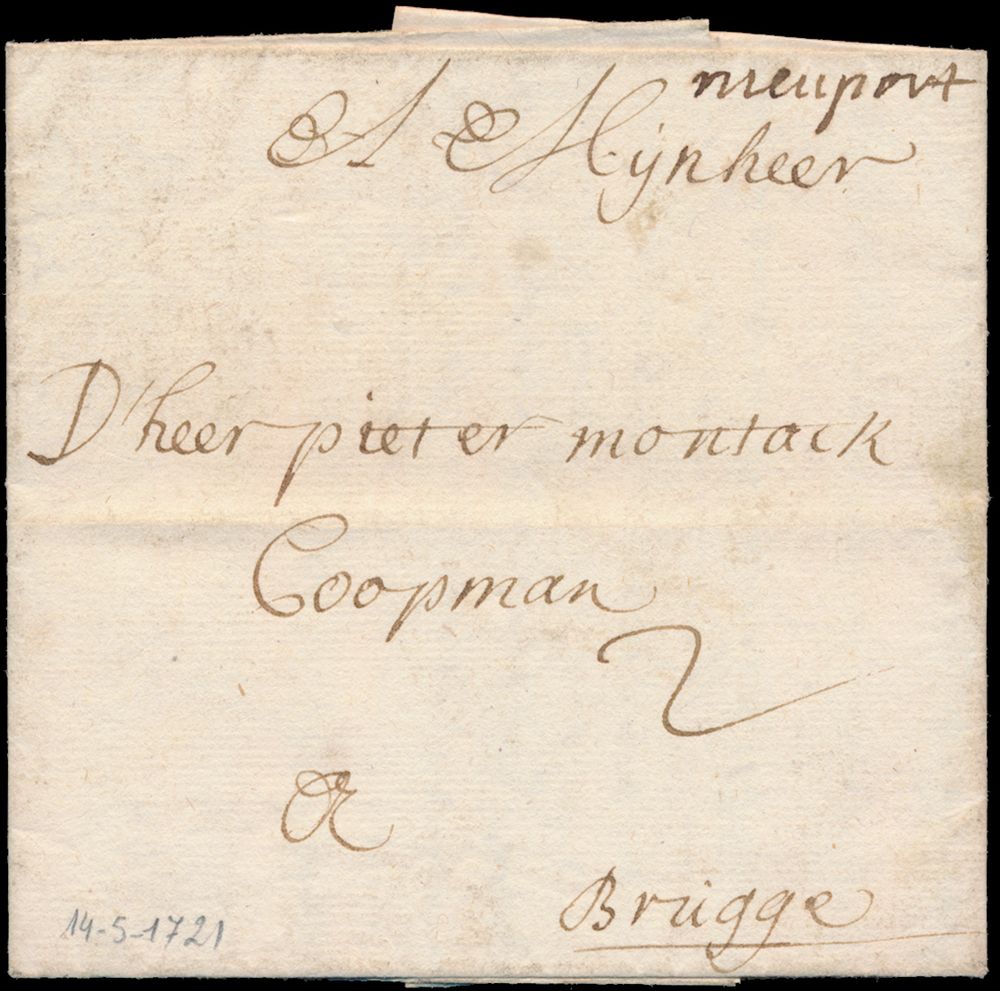 nieuport
A Mijnheer
D'heer pieter montack
Coopman
2
A
Brugge
14-5-1721